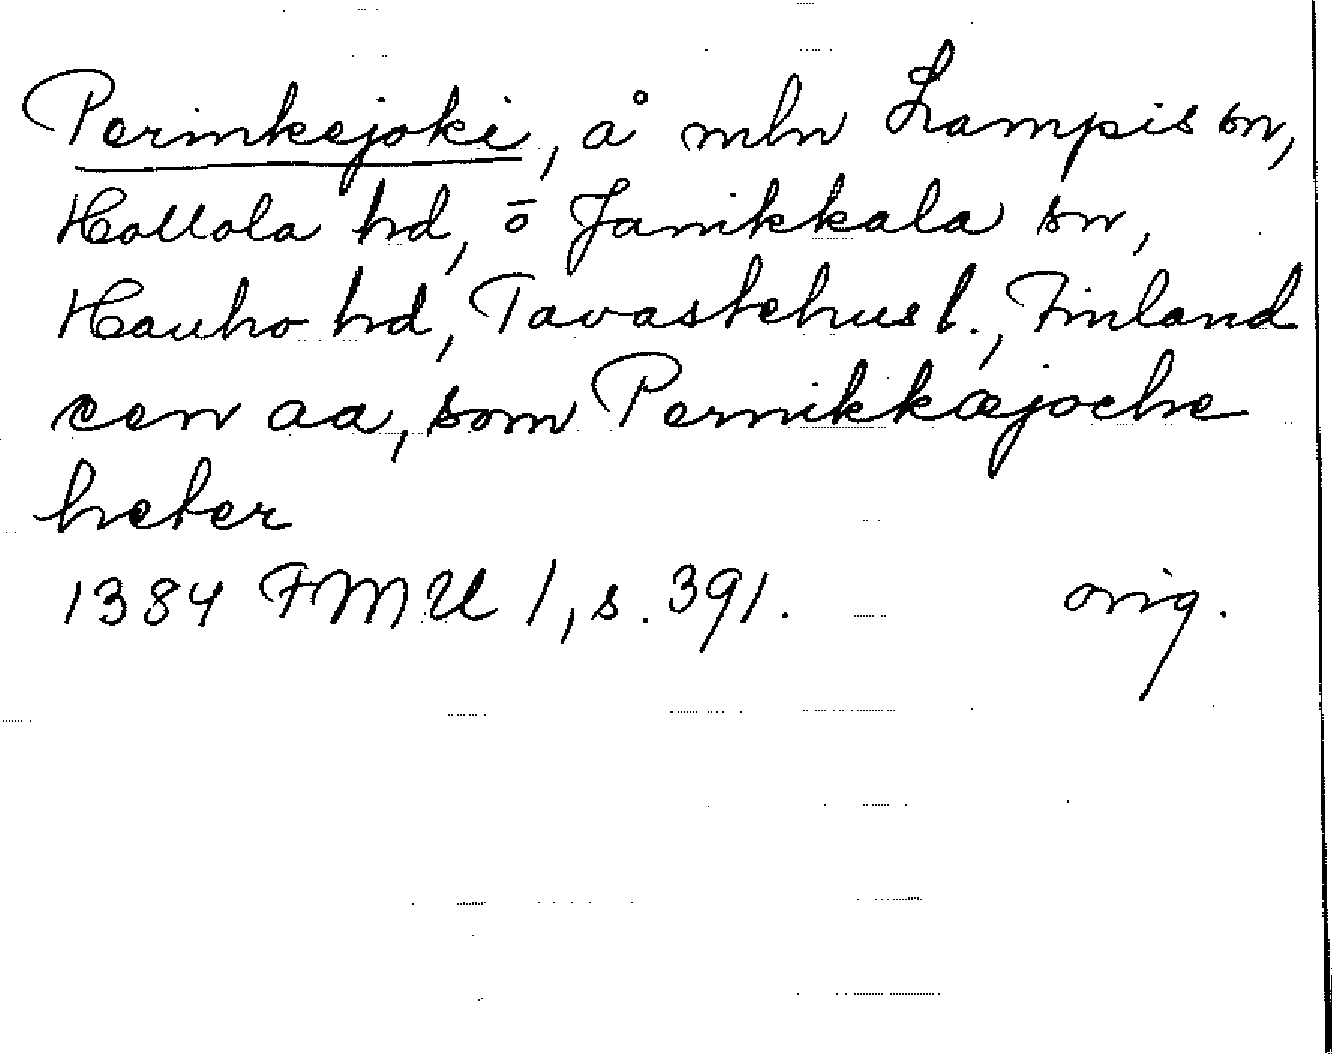 Perinkejoki, å mln Lampis sn,
Hollola hd, ō Janakkala sn,
Hauho hd, Tavastehus l., Finland
een aa, som Pernikkæjoche
heter
1384 FMU 1, s. 391. orig.